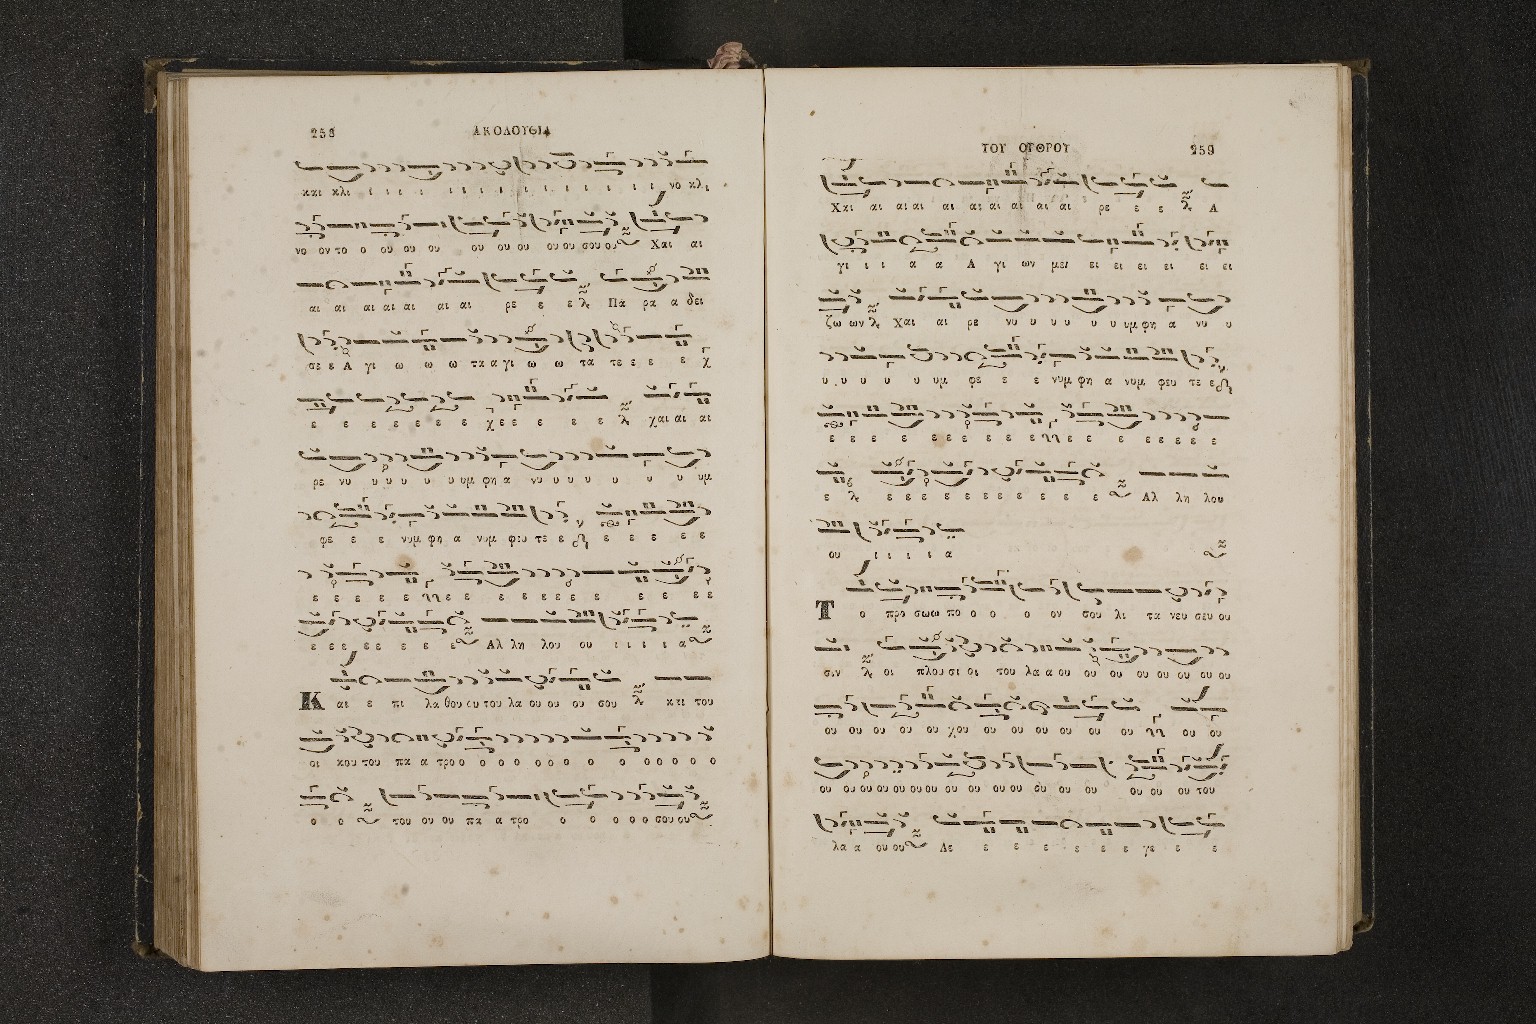 258 ΑΚΟΛΟΥΘΙΑ
και κλι ι ι ι ι ι ι ι ι ι ι ι ι ι ι ι νο κλι
νο ον το ο ου ου ου ου ου ου ου ου σου ου Χαι αι
αι αι αι αι αι αι αι ρε ε ε Πα ρα α δει
σε ε Α γι ω ω ω τα α γι ω ω τα τε ε ε ε χ
ε ε ε ε ε ε ε χε ε ε ε ε χαι αι αι
ρε νυ υ υ υ υ υ υμ φη α νυ υ υ υ υ υ υ υμ
φε ε ε νυμ φη α νυμ φευ τε ε ε ε ε ε ε
ε ε ε ε ε ε ε ε ε ε ε ε ε ε ε ε ε
ε ε ε ε ε ε ε ε Αλ λη λου ου ι ι ι ι α
Και ε πι λα θου ου του λα ου ου ου σου και του
οι κου του πα α τρο ο ο ο ο ο ο ο ο ο ο ο ο ο
ο ο του ου ου πα α τρο ο ο ο ο ο σου ου
ΤΟΥ ΟΡΘΡΟΥ 259
Χαι αι αι αι αι αι αι αι αι αι ρε ε ε Α
γι ι ι α α Α γι ων μει ει ει ει ει ει ει
ζω ων Χαι αι ρε νυ υ υ υ υ υ υμ φη α νυ υ
υ υ υ υ υ υμ φε ε ε νυμ φη α νυμ φευ τε ε
ε ε ε ε ε ε ε ε ε ε ε ε ε ε ε ε ε ε
ε ε ε ε ε ε ε ε ε ε ε ε Αλ λη λου
ου ι ι ι ι α
Το προ σωω πο ο ο ο ον σου λι τα νευ σευ ου
σιν οι πλου σι οι του λα α ου ου ου ου ου ου ου ου
ου ου ου ου ου χου ου ου ου ου ου ου ου ου ου
ου ου ου ου ου ου ου ου ου ου ου ου ου ου ου ου ου ου του
λα α ου ου Λε ε ε ε ε ε ε γε ε ε